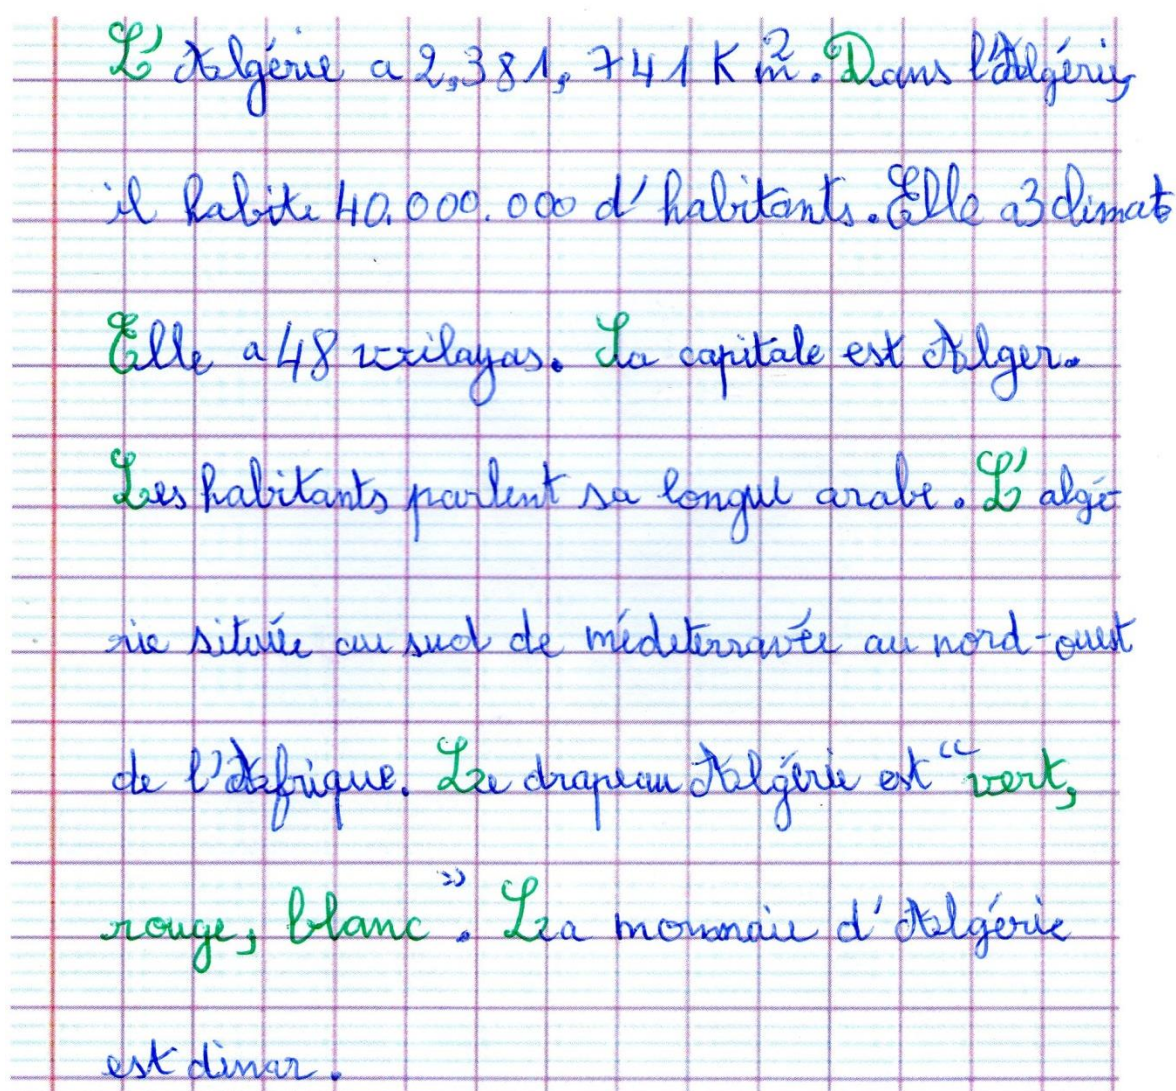 L'Algérie a 2,381,741 Km². Dans l'Algérie,
il habite 40.000.000 d'habitants. Elle a 3 climats
Elle a 48 wilayas. La capitale est Alger.
Les habitants parlent sa longue arabe. L'algé
rie située au sud de méditerranée au nord-ouest
de l'Afrique. Le drapeau Algérie est "vert,
rouge, blanc". La monnaie d'Algérie
est dinar.